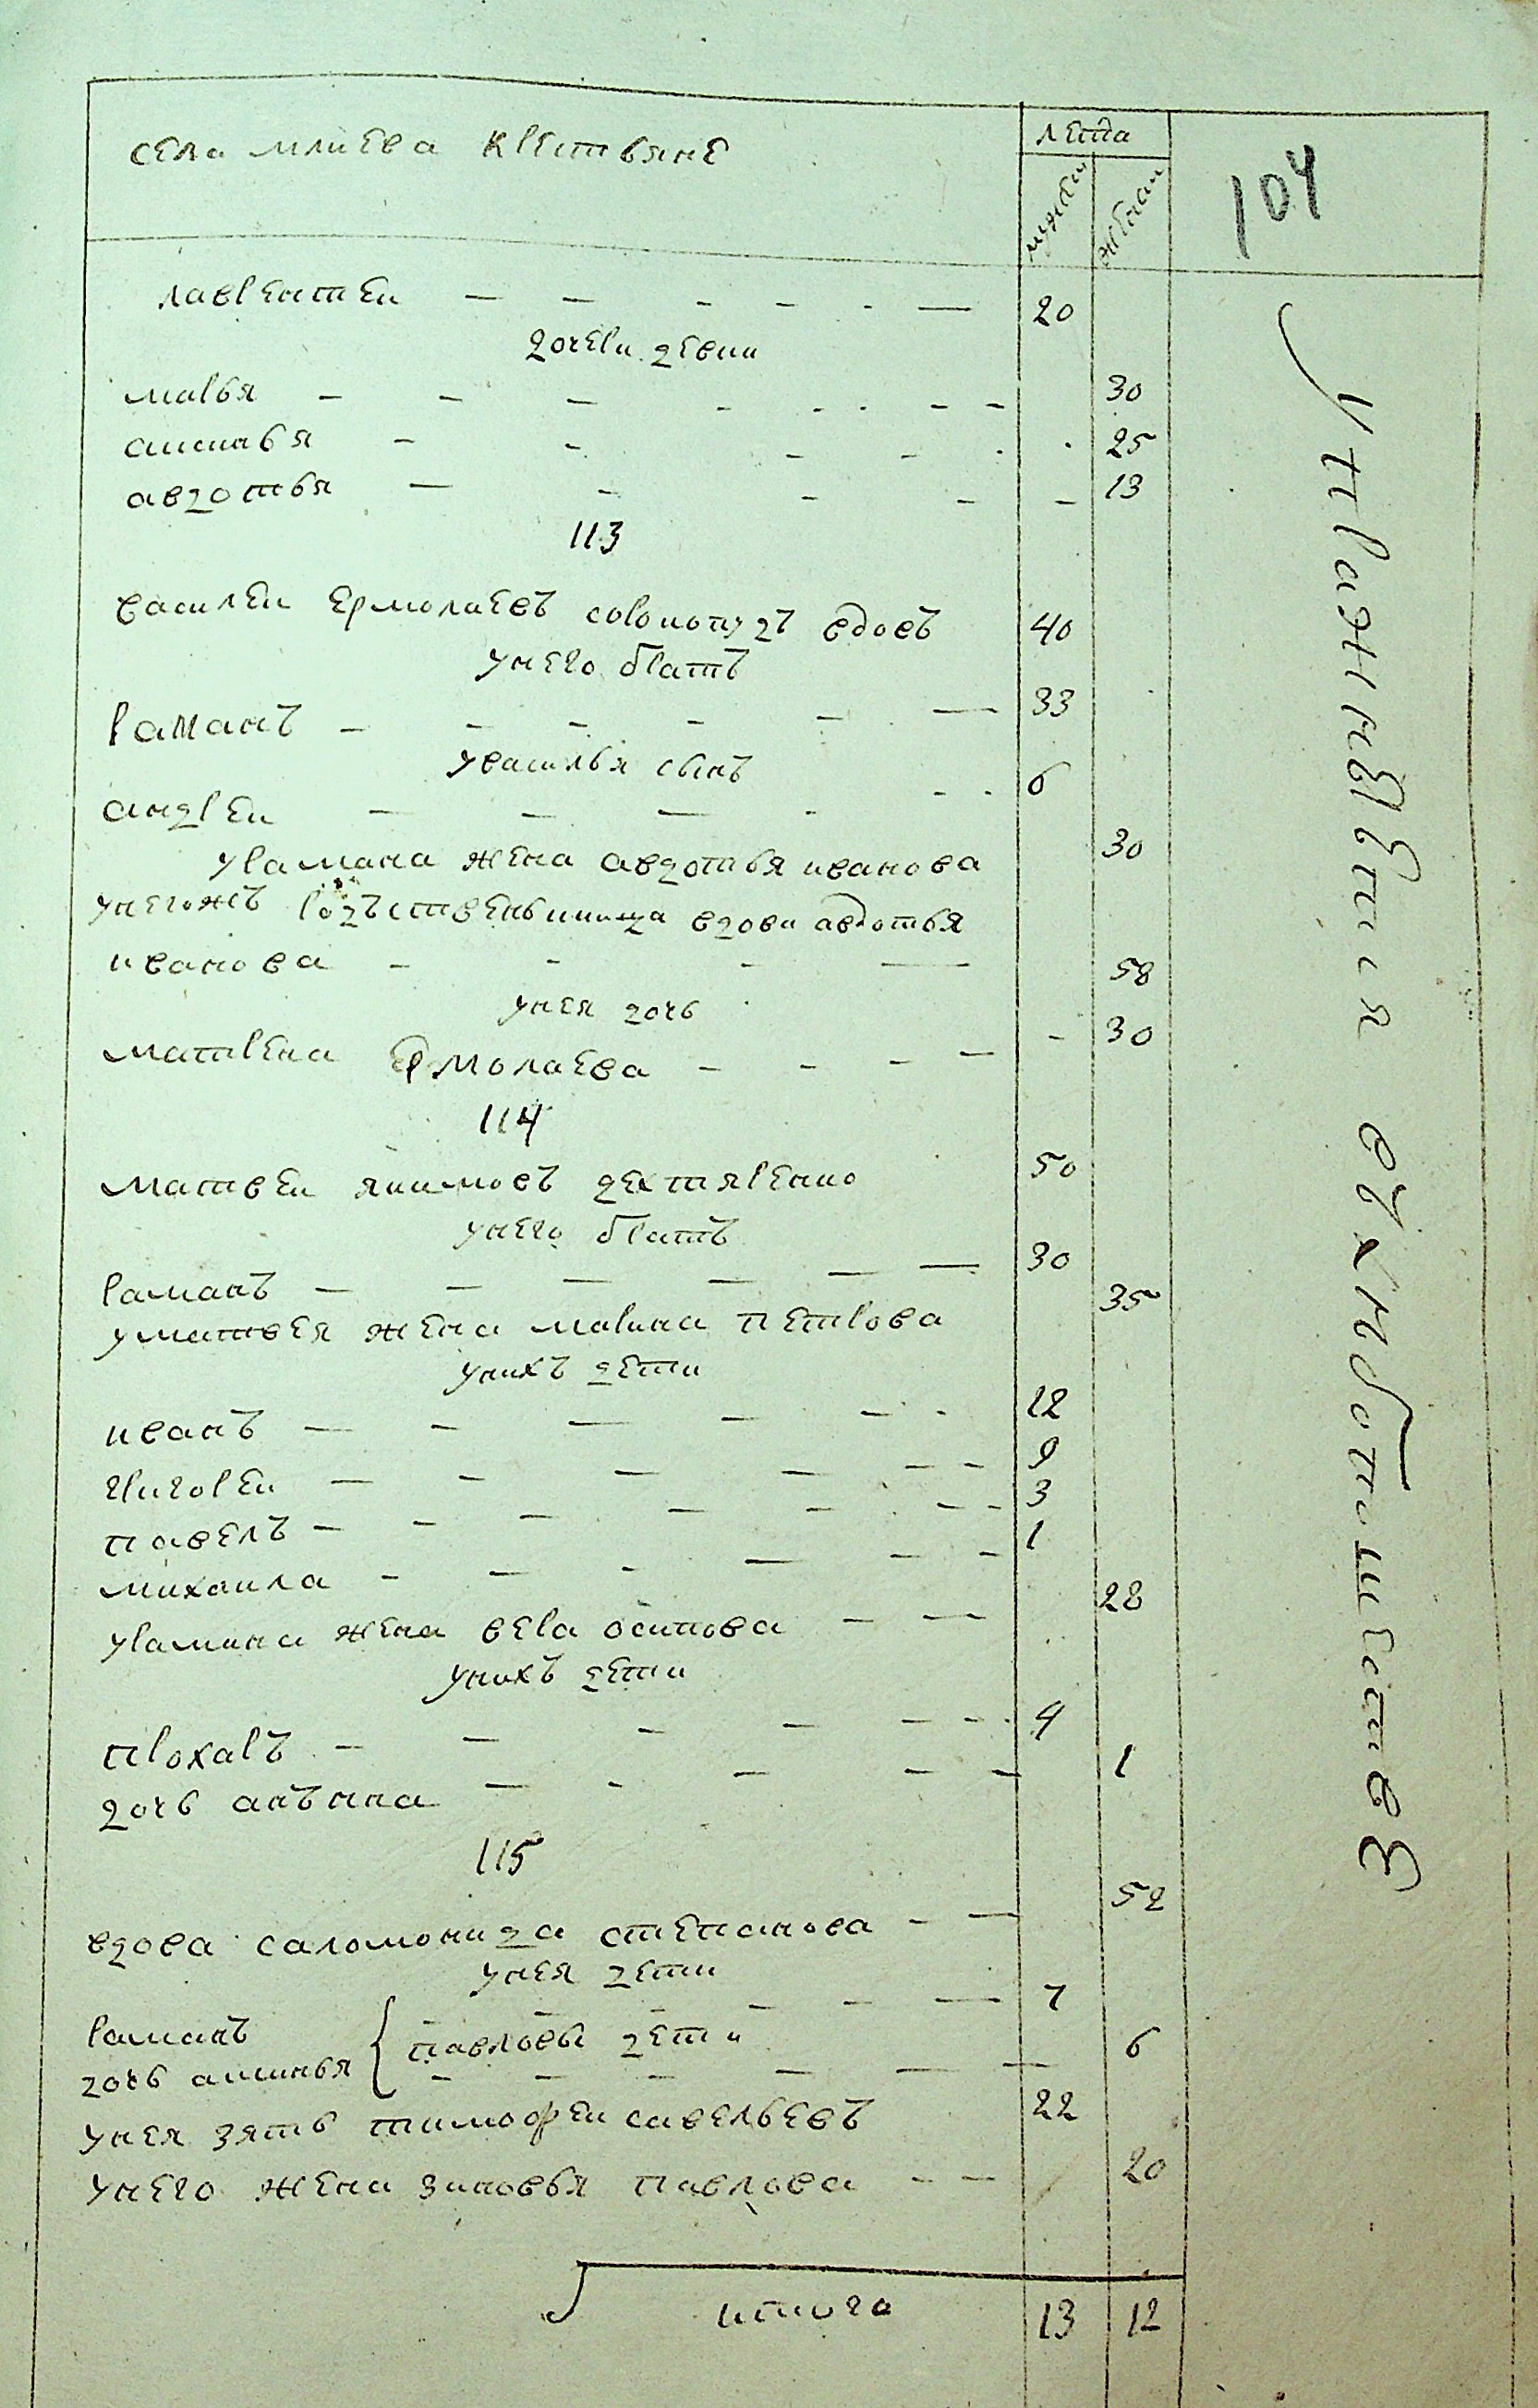 села млиева крестьяне
лета
мужски
женски
104
лаврентей — — - - - — 20
дочери девки
марья — - — - - - - - 30
аксинья - - - - - 25
авдотья — - - - - 13
113
василей ермолаевъ соропудъ вдовъ 40
унего братъ
раманъ — - - - - — 33
увасилья сынъ
андреи — — — - - - 6
урамана жена авдотья иванова 30
унегожъ родъственьница вдова авдотья
иванова - - - — 58
унея дочь
матрена ермолаева - - - — - 30
114
матвеи якимовъ дехтяренко 50
унего братъ
раманъ — — — — — — 30
уматвея жена марина петрова 35
унихъ дети
иванъ — - — - - - 12
григореи — - — — - - 9
павелъ — - — — - - - 3
михаила - — - — - - 1
урамана жена вера осипова - — 28
унихъ дети
прохаръ - — - - - - - 4
дочь анъна — - — - - 1
115
вдова саломонида степанова - — 52
унея дети
раманъ 7
дочь аксинья { павловы дети 6
унея зять тимофеи савельевъ 22
унего жена зиновья павлова - — 20
итого 13 12